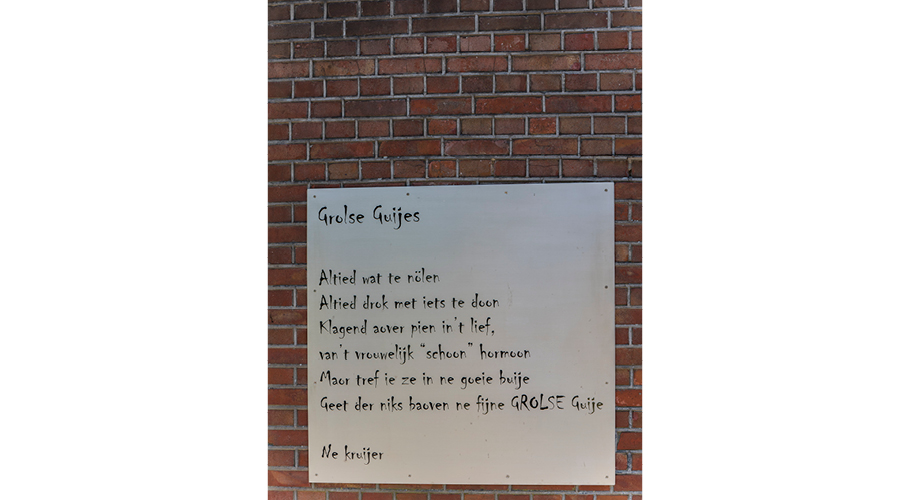 Grolse Guijes
Altied wat te nölen
Altied drok met iets te doon
Klagend aover pien in't lief,
van't vrouwelijk “schoon” hormoon
Maor tref ie ze in ne goeie buije
Geet der niks baoven ne fijne GROLSE Guije
Ne kruijer